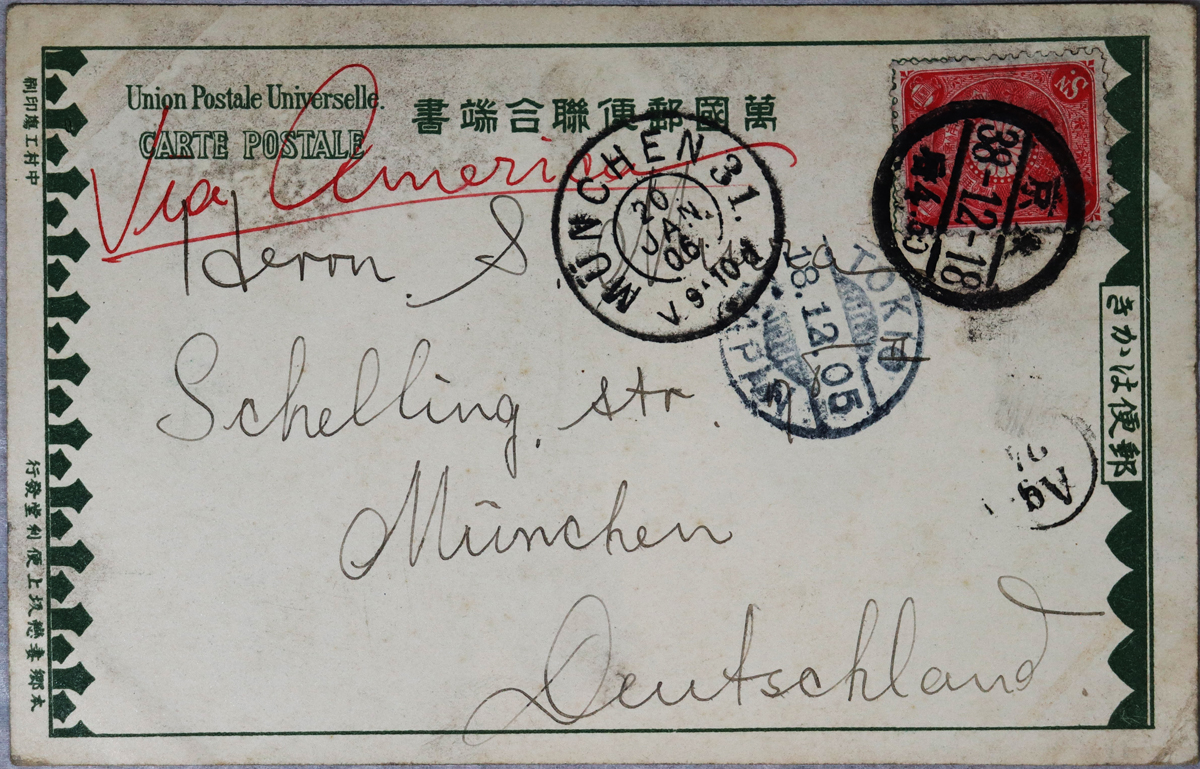 Union Postale Universelle.
CARTE POSTALE
萬國郵便聯合端書
Via America
Herrn. S.
Schelling. str.
München
Deutschland.
MÜNCHEN 31.
20
JAN
06
V.9-10
TOKIO
18.12.05
JAPAN
東京
38-12-18
4.50
Sn.
郵便はかき
Ag
中村工場印刷
本郷妻戀坂上便利堂發行